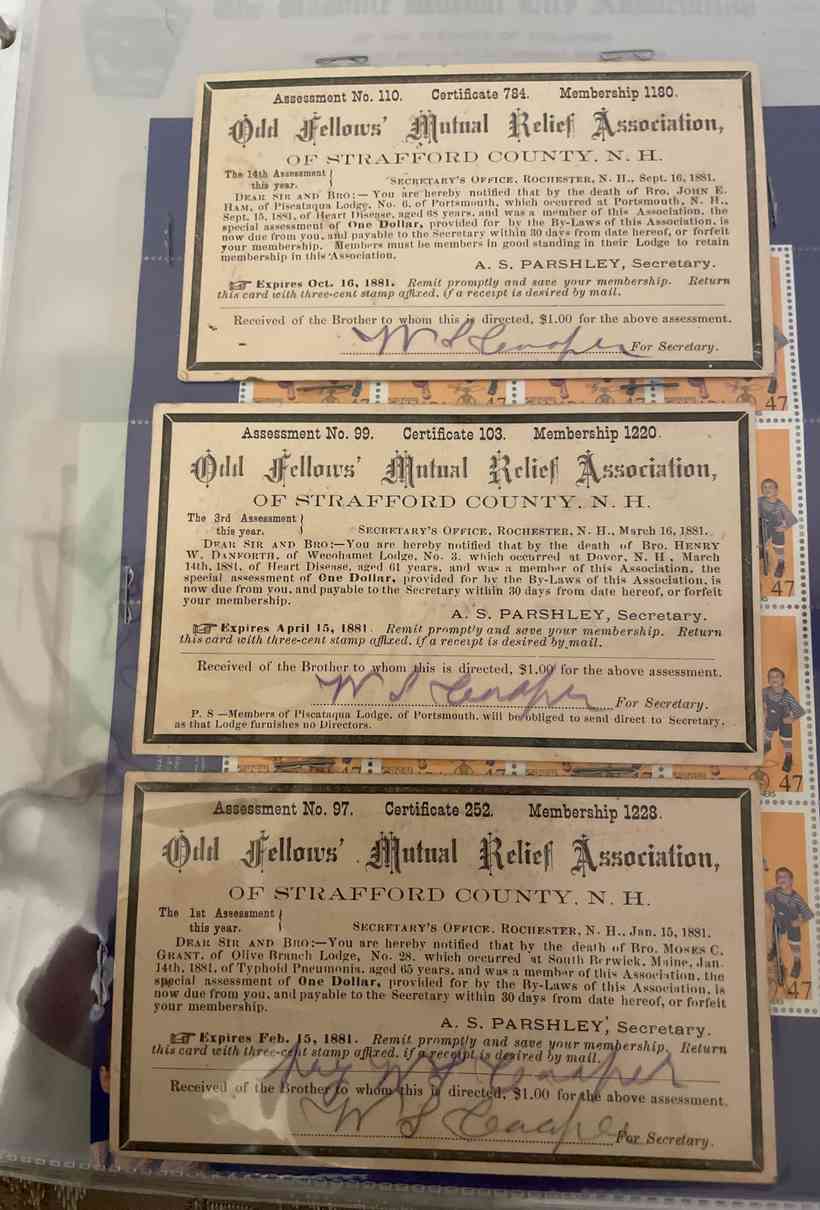 The Masonic Mutual City Association
Assessment No. 110. Certificate 784. Membership 1180.
Odd Fellows' Mutual Relief Association,
OF STRAFFORD COUNTY, N. H.
The 14th Assessment
this year. SECRETARY'S OFFICE, ROCHESTER, N. H., Sept. 16, 1881.
DEAR SIR AND BRO:—You are hereby notified that by the death of Bro. JOHN E.
HAM, of Piscataqua Lodge, No. 6, of Portsmouth, which occurred at Portsmouth, N. H.,
Sept. 15, 1881, of Heart Disease, aged 68 years, and was a member of this Association, the
special assessment of One Dollar, provided for by the By-Laws of this Association, is
now due from you, and payable to the Secretary within 30 days from date hereof, or forfeit
your membership. Members must be members in good standing in their Lodge to retain
membership in this Association.
A. S. PARSHLEY, Secretary.
☞ Expires Oct. 16, 1881. Remit promptly and save your membership. Return
this card with three-cent stamp affixed, if a receipt is desired by mail.
Received of the Brother to whom this is directed, $1.00 for the above assessment.
W S Cooper For Secretary.
47
Assessment No. 99. Certificate 103. Membership 1220.
Odd Fellows' Mutual Relief Association,
OF STRAFFORD COUNTY, N. H.
The 3rd Assessment
this year. SECRETARY'S OFFICE, ROCHESTER, N. H., March 16, 1881.
DEAR SIR AND BRO:—You are hereby notified that by the death of Bro. HENRY
W. DANFORTH, of Wecohamet Lodge, No. 3, which occurred at Dover, N. H., March
14th, 1881, of Heart Disease, aged 61 years, and was a member of this Association, the
special assessment of One Dollar, provided for by the By-Laws of this Association, is
now due from you, and payable to the Secretary within 30 days from date hereof, or forfeit
your membership.
A. S. PARSHLEY, Secretary.
☞ Expires April 15, 1881. Remit promptly and save your membership. Return
this card with three-cent stamp affixed, if a receipt is desired by mail.
Received of the Brother to whom this is directed, $1.00 for the above assessment.
W S Cooper For Secretary.
P. S —Members of Piscataqua Lodge, of Portsmouth, will be obliged to send direct to Secretary,
as that Lodge furnishes no Directors.
47
47
Assessment No. 97. Certificate 252. Membership 1228.
Odd Fellows' Mutual Relief Association,
OF STRAFFORD COUNTY, N. H.
The 1st Assessment
this year. SECRETARY'S OFFICE, ROCHESTER, N. H., Jan. 15, 1881.
DEAR SIR AND BRO:—You are hereby notified that by the death of Bro. MOSES C.
GRANT, of Olive Branch Lodge, No. 28, which occurred at South Berwick, Maine, Jan
14th, 1881, of Typhoid Pneumonia, aged 65 years, and was a member of this Association, the
special assessment of One Dollar, provided for by the By-Laws of this Association, is
now due from you, and payable to the Secretary within 30 days from date hereof, or forfeit
your membership.
A. S. PARSHLEY, Secretary.
☞ Expires Feb. 15, 1881. Remit promptly and save your membership. Return
this card with three-cent stamp affixed, if a receipt is desired by mail.
pay W S Cooper
Received of the Brother to whom this is directed, $1.00 for the above assessment.
W S Cooper For Secretary.
47